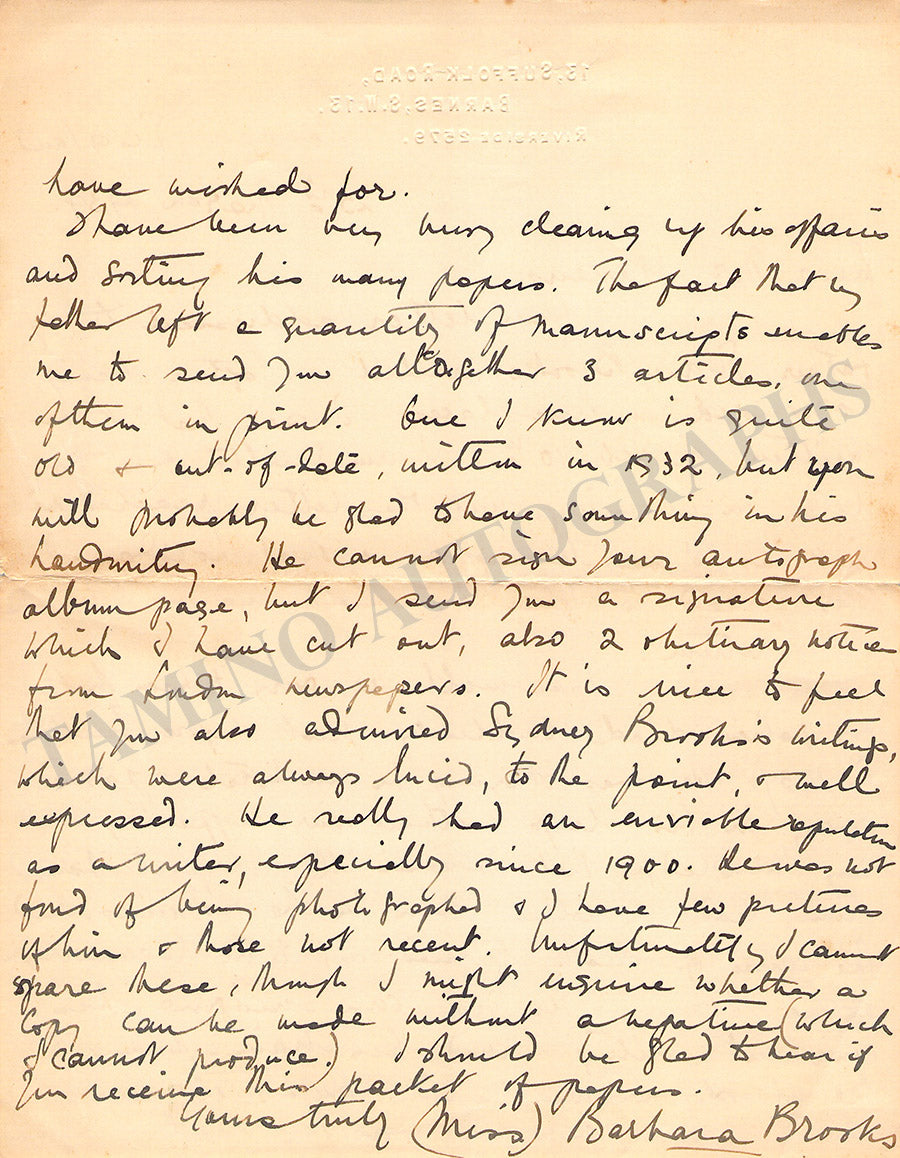 13, SUFFOLK ROAD,
BARNES, S.W.13.
RIVERSIDE 2579.
have wished for.
I have been very busy clearing up his affairs
and sorting his many papers. The fact that my
father left a quantity of manuscripts enables
me to send you altogether 3 articles, one
of them in print. One I know is quite
old & out-of-date, written in 1932, but you
will probably be glad to have something in his
handwriting. He cannot sign your autograph
album page, but I send you a signature
which I have cut out, also 2 obituary notices
from London newspapers. It is nice to feel
that you also admired Sydney Brooks's writings,
which were always lucid, to the point, & well
expressed. He really had an enviable reputation
as a writer, especially since 1900. He was not
fond of being photographed & I have few pictures
of him & those not recent. Unfortunately I cannot
spare these, though I might enquire whether a
copy can be made without a negative (which
I cannot produce.) I should be glad to hear if
you receive this packet of papers.
Yours truly (Miss) Barbara Brooks
TAMINO AUTOGRAPHS